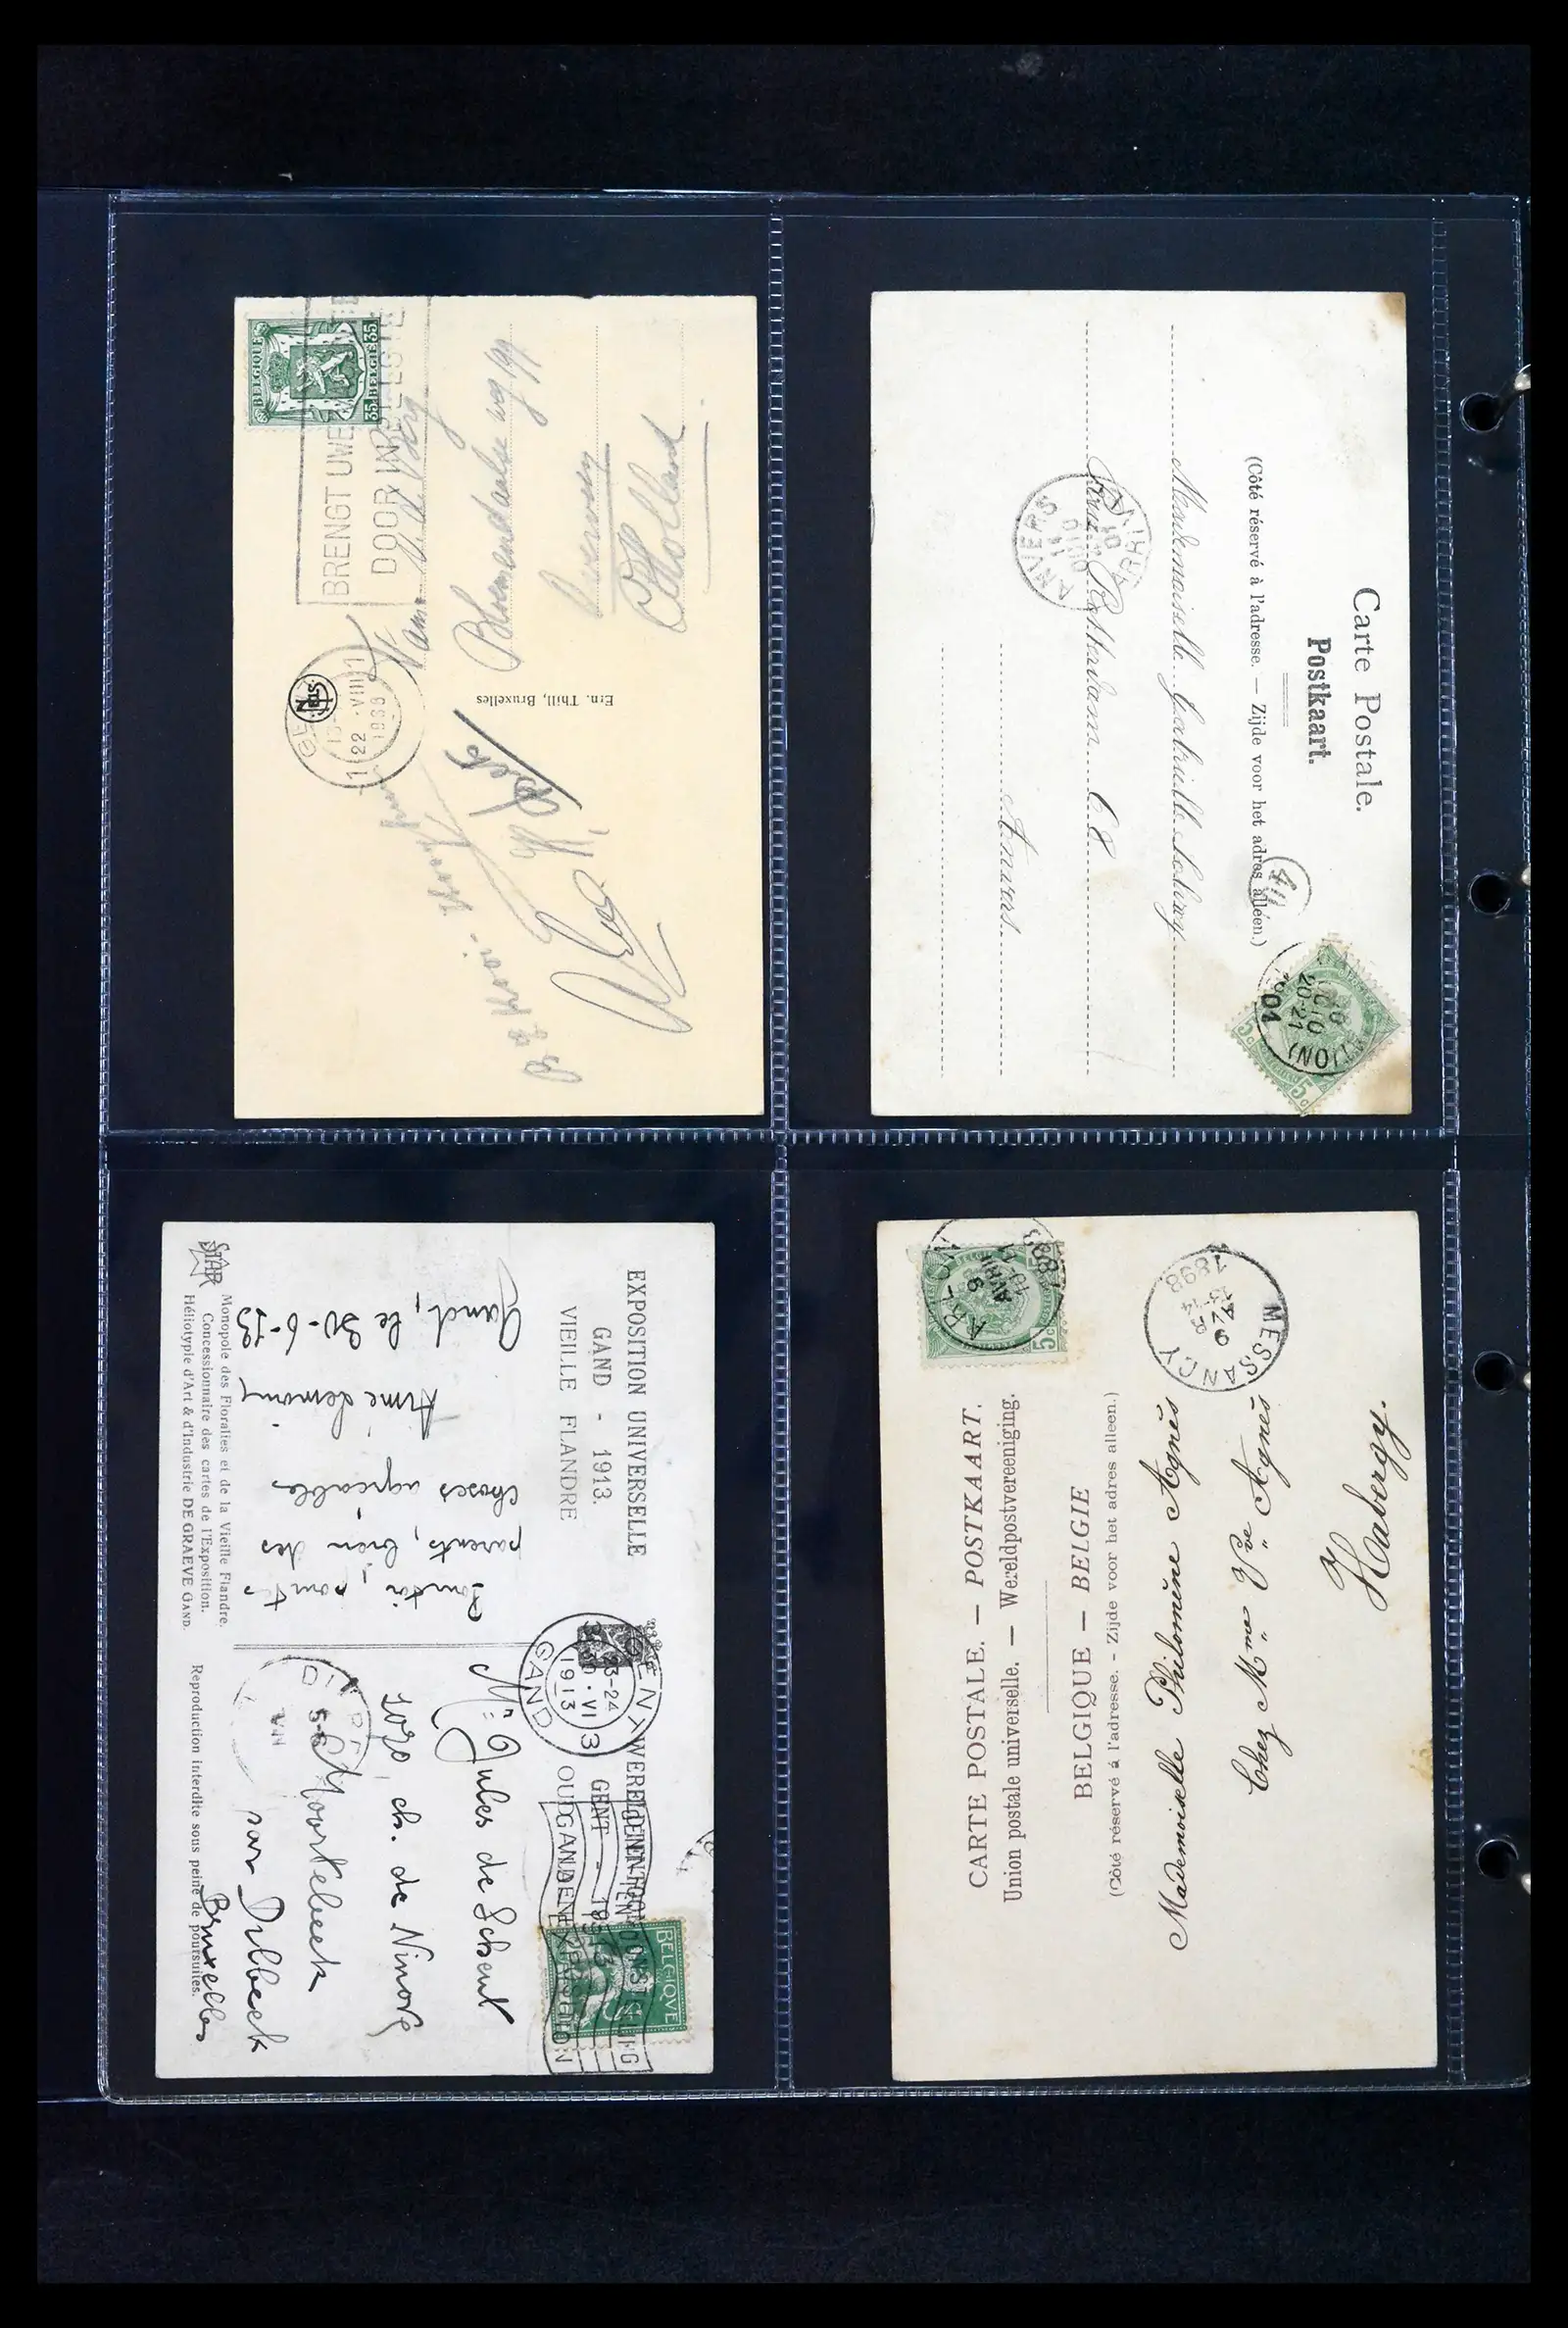 BELGIQUE
35 BELGIE 35
BRENGT UWE
DOOR
22 · VIII
Bloemendaalse weg 99
Overveen
Holland
Nels
Ern. Thill, Bruxelles
Carte Postale.
Postkaart.
(Côté réservé à l'adresse. — Zijde voor het adres alléén.)
Mademoiselle Gabrielle
Rotterdam 68
Anvers.
ANVERS
5c 5c
20-21
EXPOSITION UNIVERSELLE
GAND - 1913.
VIEILLE FLANDRE
WERELDTENTOONSTELLING
GENT - 1913
OUD
Gand, le 30-6-13
Pour toi, pour tes
parents, bien des
choses agréables
Mr Jules de Schout
1070, ch. de Ninove
Moortebeek
sous Dilbeek
Bruxelles
GENT
23-24
30·VI
1913
GAND
BELGIQVE
STAR
Monopole des Floralies et de la Vieille Flandre.
Concessionnaire des cartes de l'Exposition.
Héliotypie d'Art & d'Industrie DE GRAEVE GAND.
Reproduction interdite sous peine de poursuites.
CARTE POSTALE. — POSTKAART.
Union postale universelle. — Wereldpostvereeniging.
BELGIQUE — BELGIE
(Côté réservé à l'adresse. - Zijde voor het adres alleen.)
Mademoiselle Philomène Agnès
Chez Mme Vve Agnès
Habergy.
ARLON
MESSANCY
1898
5c